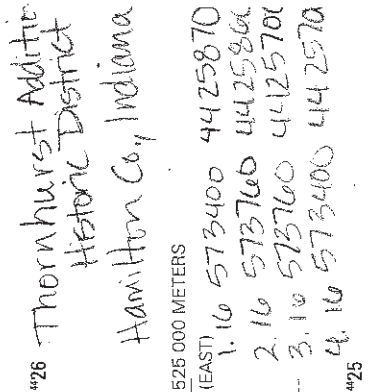 ⁴⁴26
Thornhurst Additio
Historic District
Hamilton Co., Indiana
525 000 METERS
(EAST)
1. 16 573400 4425870
2. 16 573760 442586
3. 16 573760 442570
4. 16 573400 442570
⁴⁴25